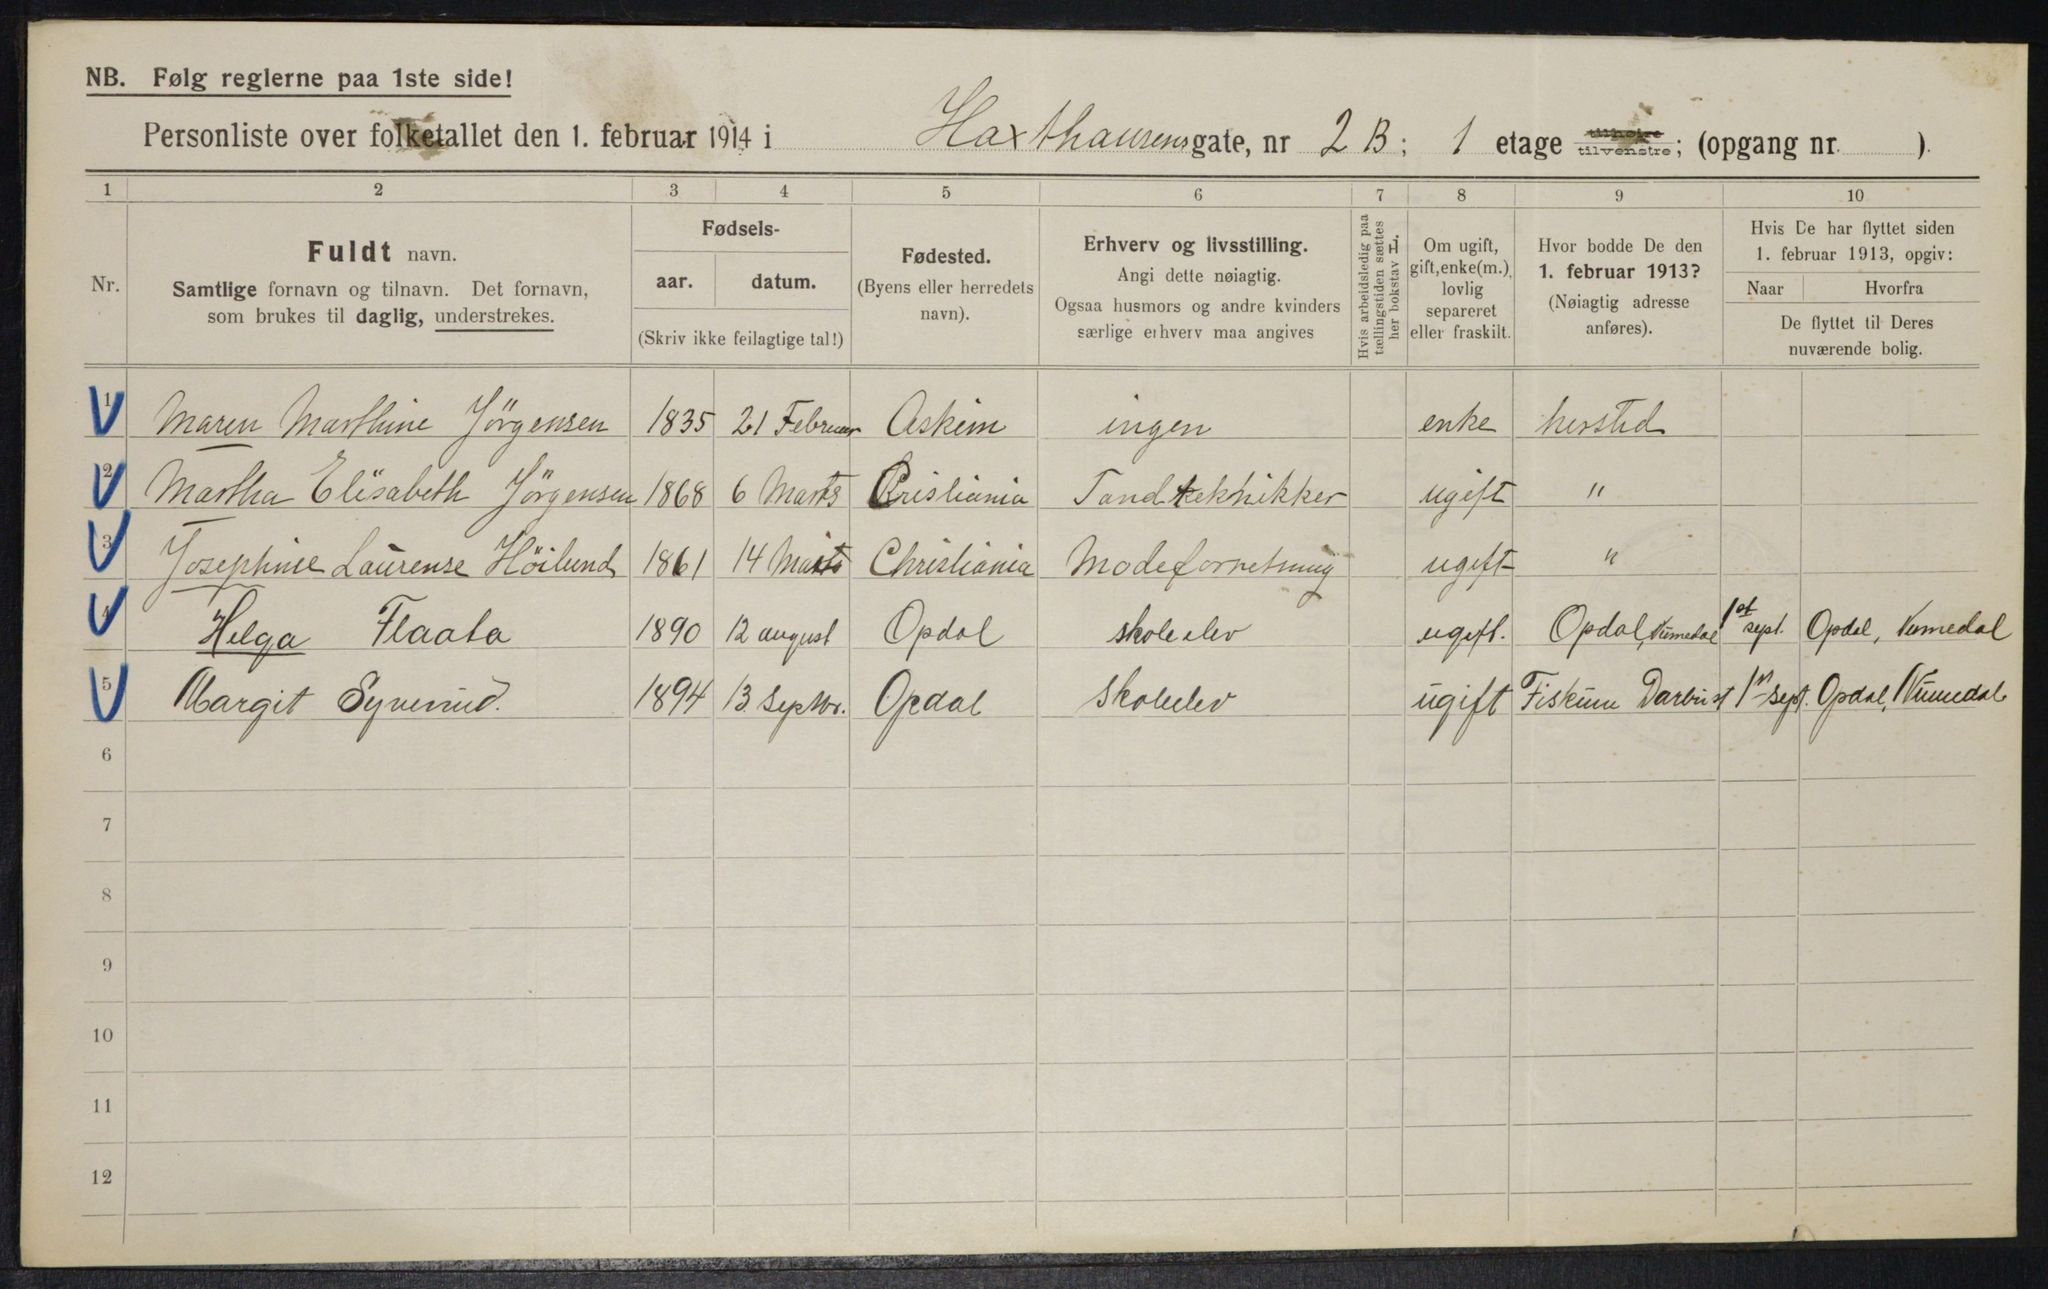 NB. Følg reglerne paa 1ste side!
Personliste over folketallet den 1. februar 1914 i Haxthausensgate, nr 2 B; 1 etage tilhøire tilvenstre; (opgang nr. ).
1 2 3 4 5 6 7 8 9 10
Nr.
Fuldt navn.
Samtlige fornavn og tilnavn. Det fornavn,
som brukes til daglig, understrekes.
Fødsels-
aar. datum.
(Skriv ikke feilagtige tal!)
Fødested.
(Byens eller herredets
navn).
Erhverv og livsstilling.
Angi dette nøiagtig.
Ogsaa husmors og andre kvinders
særlige erhverv maa angives
Hvis arbeidsledig paa
tællingstiden sættes
her bokstav L.
Om ugift,
gift, enke(m.),
lovlig
separeret
eller fraskilt.
Hvor bodde De den
1. februar 1913?
(Nøiagtig adresse
anføres).
Hvis De har flyttet siden
1. februar 1913, opgiv:
Naar Hvorfra
De flyttet til Deres
nuværende bolig.
1 Maren Marthine Jörgensen 1835 21 Februar Askim ingen enke hersted
2 Martha Elisabeth Jörgensen 1868 6 Marts Kristiania Tandtekhikker ugift "
3 Josephine Laurense Höilund 1861 14 Marts Christiania Modeforretning ugift "
4 Helga Flaata 1890 12 august Opdal skoleelev ugift. Opdal, Numedal 1st sept. Opdal, Numedal
5 Margit Synerud. 1894 13 Septbr. Opdal skoleelev ugift Fiskum Darbu st 1st sept. Opdal, Numedal
6
7
8
9
10
11
12